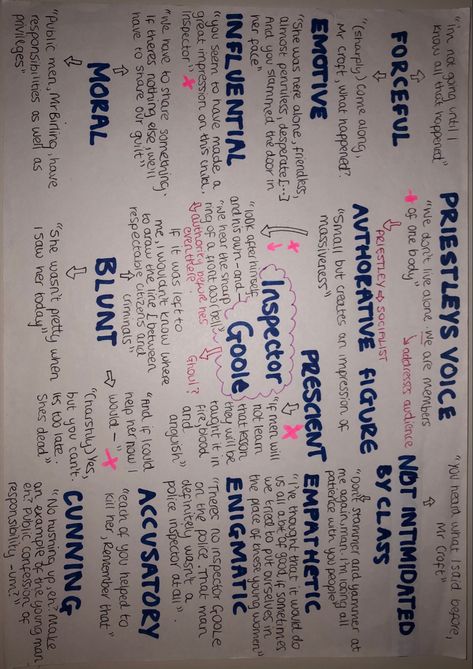 "I'm not going until I
know all that happened"
FORCEFUL
"(sharply) Come along,
Mr Croft, what happened?
EMOTIVE
"She was here alone, friendless,
almost penniless, desperate [...]
And you slammed the door in
her face"
INFLUENTIAL
"you seem to have made a
great impression on this child,
Inspector"
"We have to share something.
If there's nothing else, we'll
have to share our guilt"
MORAL
"Public men, Mr Birling, have
responsibilities as well as
privileges"
PRIESTLEYS VOICE
"We don't live alone. We are members
of one body"
addresses audience
PRIESTLEY → SOCIALIST
AUTHORATIVE FIGURE
"Small but creates an impression of
massiveness"
"look after himself
and his own - and -
We hear the sharp
ring of a front door bell"
authority before hes
even there
Inspector
Goole
Ghoul?
"if it was left to
me, I wouldn't know where
to draw the line between
respectable citizens and
criminals"
BLUNT
"She wasn't pretty when
I saw her today"
PRESCIENT
"If men will
not learn
that lesson,
they will be
taught it in
fire, blood
and
anguish"
"and if I could
help her now I
would -"
"(harshly) Yes,
but you can't.
It's too late.
Shes dead"
"You heard what I said before,
Mr Croft"
NOT INTIMIDATED
BY CLASS
"Don't stammer and yammer at
me again, man. I'm losing all
patience with you people"
EMPATHETIC
"I've thought that it would do
us all a bit of good if sometimes
we tried to put ourselves in
the place of these young women"
ENIGMATIC
"There's no Inspector GOOLE
on the police. That man
definitely wasn't a
police inspector at all"
ACCUSATORY
"each of you helped to
kill her. Remember that"
CUNNING
"No hushing up, eh? Make
an example of the young man,
eh? Public confession of
responsibility - um?"